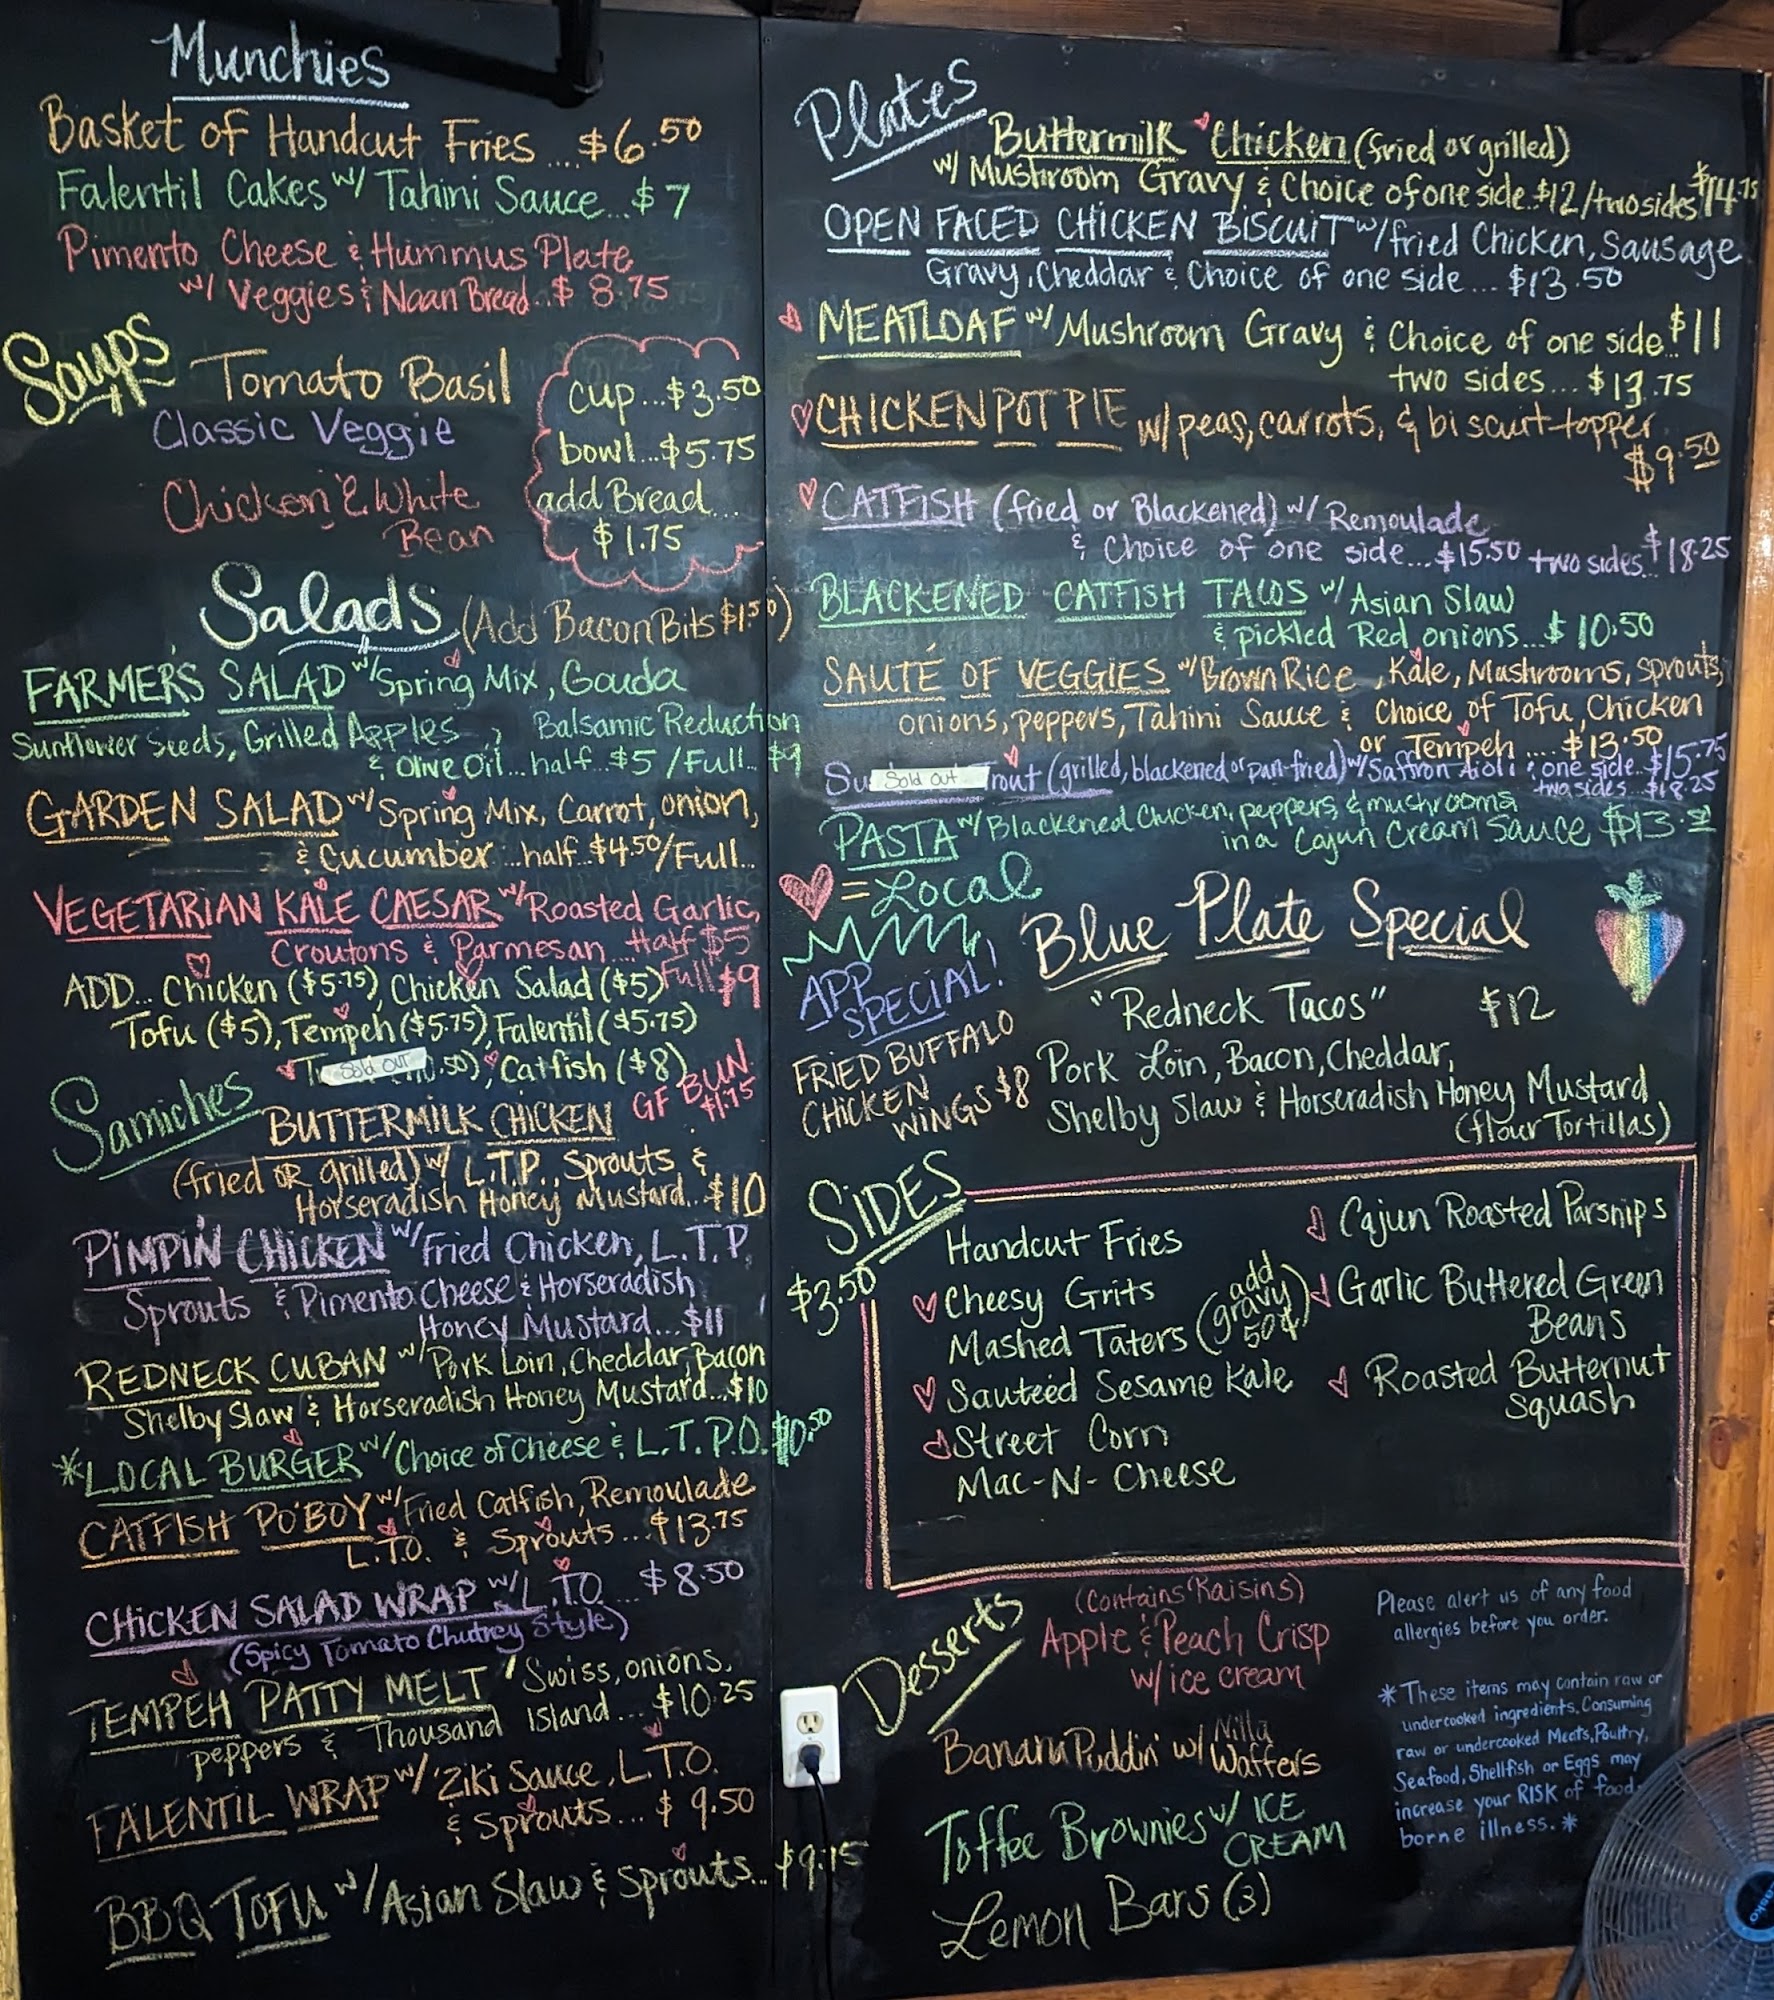 Munchies
Basket of Handcut Fries .... $6.50
Falentil Cakes w/ Tahini Sauce... $7
Pimento Cheese & Hummus Plate
w/ Veggies & Naan Bread... $8.75
Soups
Tomato Basil
Classic Veggie
Chicken & White
Bean
cup...$3.50
bowl...$5.75
add Bread...
$1.75
Salads (Add Bacon Bits $1.50)
FARMER'S SALAD w/ Spring Mix, Gouda
Sunflower Seeds, Grilled Apples, Balsamic Reduction
& Olive Oil... half...$5 /Full... $9
GARDEN SALAD w/ Spring Mix, Carrot, onion,
& Cucumber ...half...$4.50/Full...
VEGETARIAN KALE CAESAR w/ Roasted Garlic,
Croutons & Parmesan ... Half $5
Full $9
ADD... Chicken ($5.75), Chicken Salad ($5)
Tofu ($5), Tempeh ($5.75), Falentil ($5.75)
T Sold out .50), Catfish ($8)
GF BUN
$1.75
Samiches
BUTTERMILK CHICKEN
(fried OR grilled) w/ L.T.P., Sprouts &
Horseradish Honey Mustard... $10
PIMPIN' CHICKEN w/ Fried Chicken, L.T.P.
Sprouts & Pimento Cheese & Horseradish
Honey Mustard...$11
REDNECK CUBAN w/ Pork Loin, Cheddar, Bacon
Shelby Slaw & Horseradish Honey Mustard...$10
*LOCAL BURGER w/ Choice of Cheese & L.T.P.O. $10.50
CATFISH PO'BOY w/ Fried Catfish, Remoulade
L.T.O. & Sprouts ... $13.75
CHICKEN SALAD WRAP w/ L.T.O. ... $8.50
(Spicy Tomato Chutney Style)
TEMPEH PATTY MELT w/ Swiss, onions,
peppers & Thousand Island ... $10.25
FALENTIL WRAP w/ 'Ziki Sauce, L.T.O.
& Sprouts... $9.50
BBQ TOFU w/ Asian Slaw & Sprouts... $9.75
Plates
Buttermilk Chicken (fried or grilled)
w/ Mushroom Gravy & Choice of one side..$12/two sides $14.75
OPEN FACED CHICKEN BISCUIT w/ fried Chicken, Sausage
Gravy, Cheddar & Choice of one side... $13.50
MEATLOAF w/ Mushroom Gravy & Choice of one side..$11
two sides... $13.75
CHICKEN POT PIE w/ peas, carrots, & biscuit topper
$9.50
CATFISH (fried or Blackened) w/ Remoulade
& Choice of one side...$15.50 two sides..$18.25
BLACKENED CATFISH TACOS w/ Asian Slaw
& pickled Red onions...$10.50
SAUTÉ OF VEGGIES w/ Brown Rice, Kale, Mushrooms, sprouts,
onions, peppers, Tahini Sauce & Choice of Tofu, Chicken
or Tempeh .... $13.50
Su Sold out Trout (grilled, blackened or pan-fried) w/ Saffron Aioli & one side...$15.75
two sides...$18.25
PASTA w/ Blackened Chicken, peppers, & mushrooms
in a Cajun Cream Sauce $13.50
= Local
APP
SPECIAL!
FRIED BUFFALO
CHICKEN
WINGS $8
Blue Plate Special
"Redneck Tacos" $12
Pork Loin, Bacon, Cheddar,
Shelby Slaw & Horseradish Honey Mustard
(flour Tortillas)
SIDES
$3.50
Handcut Fries
Cheesy Grits
Mashed Taters (add gravy 50¢)
Sauteéd Sesame Kale
Street Corn
Mac-N-Cheese
Cajun Roasted Parsnips
Garlic Buttered Green
Beans
Roasted Butternut
Squash
Desserts
(Contains Raisins)
Apple & Peach Crisp
w/ ice cream
Banana Puddin' w/ Nilla
Waffers
Toffee Brownies w/ ICE
CREAM
Lemon Bars (3)
Please alert us of any food
allergies before you order.
*These items may contain raw or
undercooked ingredients. Consuming
raw or undercooked Meats, Poultry,
Seafood, Shellfish or Eggs may
increase your RISK of food
borne illness.*